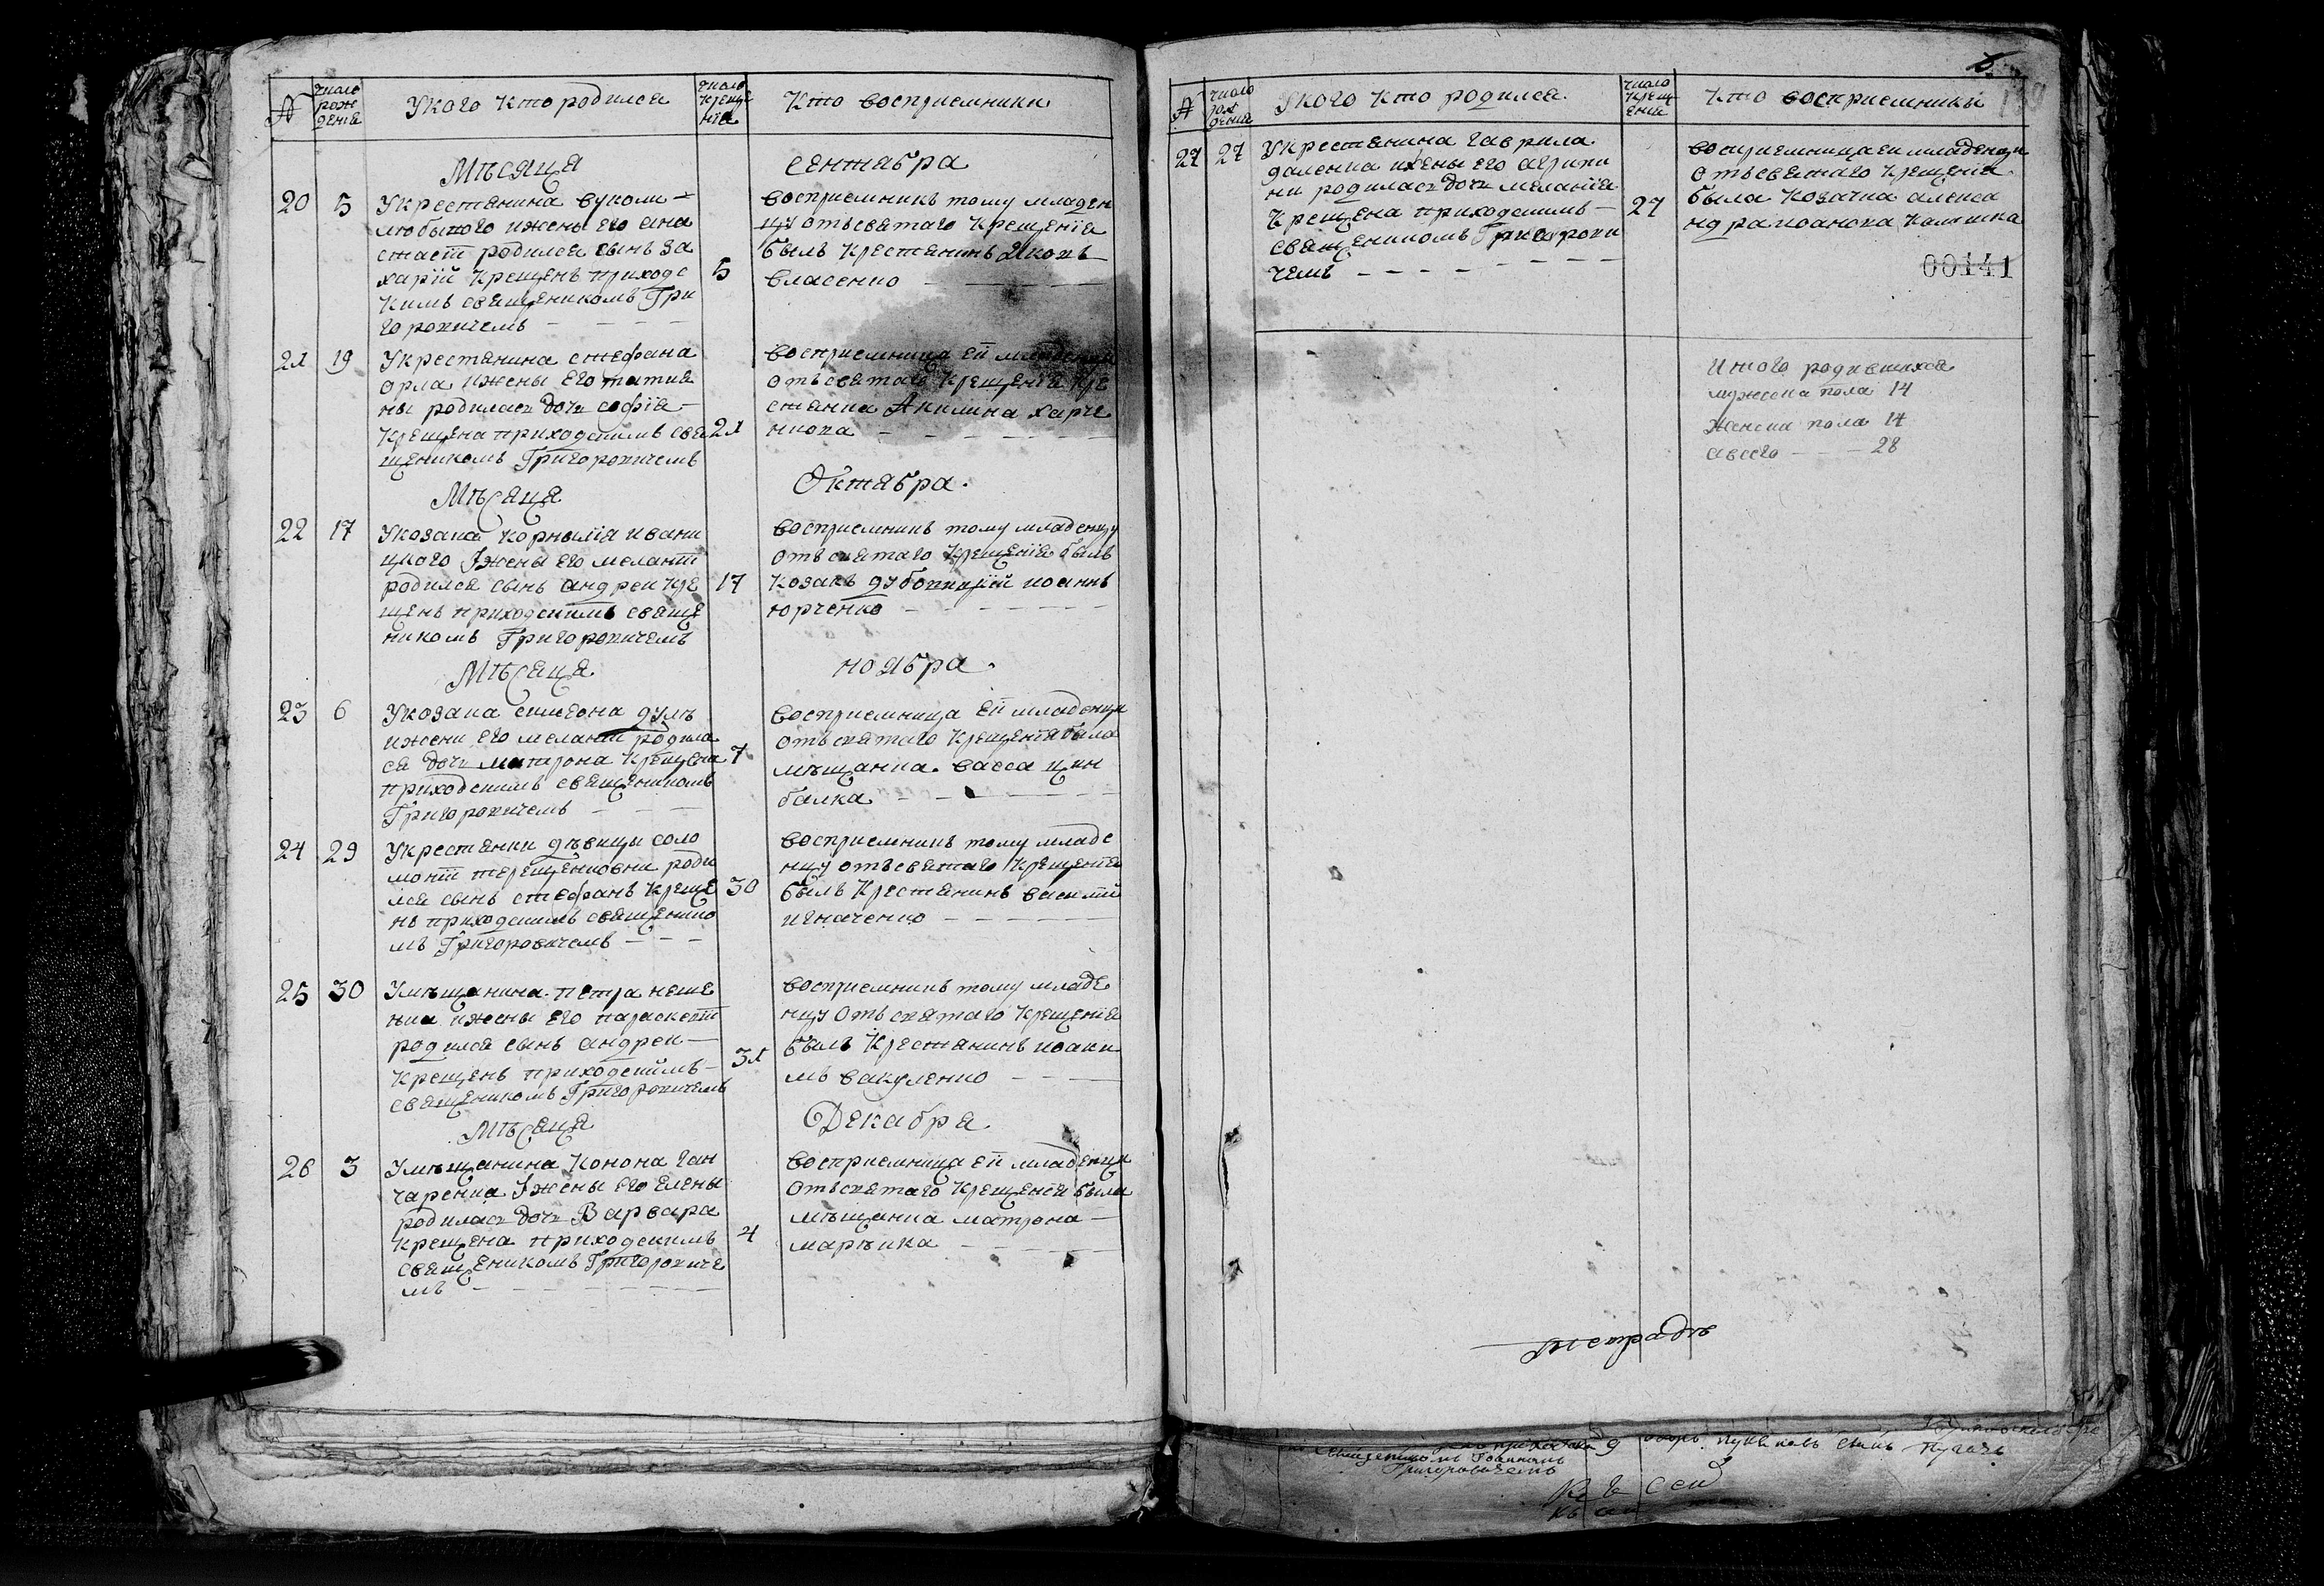 №
число рожденія
У кого кто родился
число крещенія
Кто восприемники
Мѣсяца
сентября
20 5
У крестянина вукоми-
любытого и жены его ана
стасіи родился сынъ за
харій Крещенъ приходс
кимъ священикомъ Гри
горовичемъ
5
восприемникъ тому младен
цу отъ святаго Крещенія
былъ Крестянинъ Яковъ
власенко
21 19
У крестянина стефана
орла и жены его татия
ны родилась дочь софія-
Крещена приходскимъ свя
щеникомъ Григоровичемъ
21
восприемница ей младенци
отъ святаго Крещенія Кре
стянка Акилина харче
нкова
Мѣсяца
Октября.
22 17
У козака корнылія ивани
цкого и жены его меланіи
родился сынъ андрей кре
щенъ приходскимъ свяще
никомъ Григоровичемъ
17
восприемникъ тому младенцу
отъ святаго Крещенія былъ
Козакъ иоаннъ
юрченко
Мѣсяца
ноября.
23 6
У козака симеона
и жени его меланіи родила
ся дочь матрона Крещена
приходскимъ священикомъ
Григоровичемъ
7
восприемница ей младенци
отъ святаго Крещенія была
мѣщанка. васса цин
балка
24 29
У крестянки дѣвицы соло
моніи терещенковни роди
лся сынъ стефанъ Креще
нъ приходскимъ священико
мъ Григоровичемъ
30
восприемникъ тому младе
нцу отъ святаго Крещенія
былъ Крестянинъ василій
игначенко
25 30
У мѣщанина. петра неше
и жены его параскевіи
родился сынъ андрей
Крещенъ приходскимъ-
священикомъ Григоровичемъ
31
восприемникъ тому младе
нцу отъ святаго Крещенія
былъ Крестянинъ иоаки
мъ вакуленко
Мѣсяца
Декабря
26 3
У мѣщанина Конона ган
чаренка и жены его Елены
родилась дочь Варвара
Крещена приходскимъ
священикомъ Григорович
емъ
4
восприемница ей младенци
отъ святаго Крещенія была
мѣщанка матрона-
марѣика
№
число рожденія
У кого кто родился
число крещенія
Кто восприемники
27 27
У Крестянина гаврила
даленка и жены его агрипи
ни родилась дочь меланія
Крещена приходскимъ-
священикомъ Григорови
чемъ
27
восприемница ей младенци
отъ святаго Крещенія
была Козачка алекса
ндра Калинка
00141
Итого родившихся
мужеска пола 14
Женска пола 14
авсего 28
Тетрадь
священикомъ Іоанномъ
Григоровичемъ
9